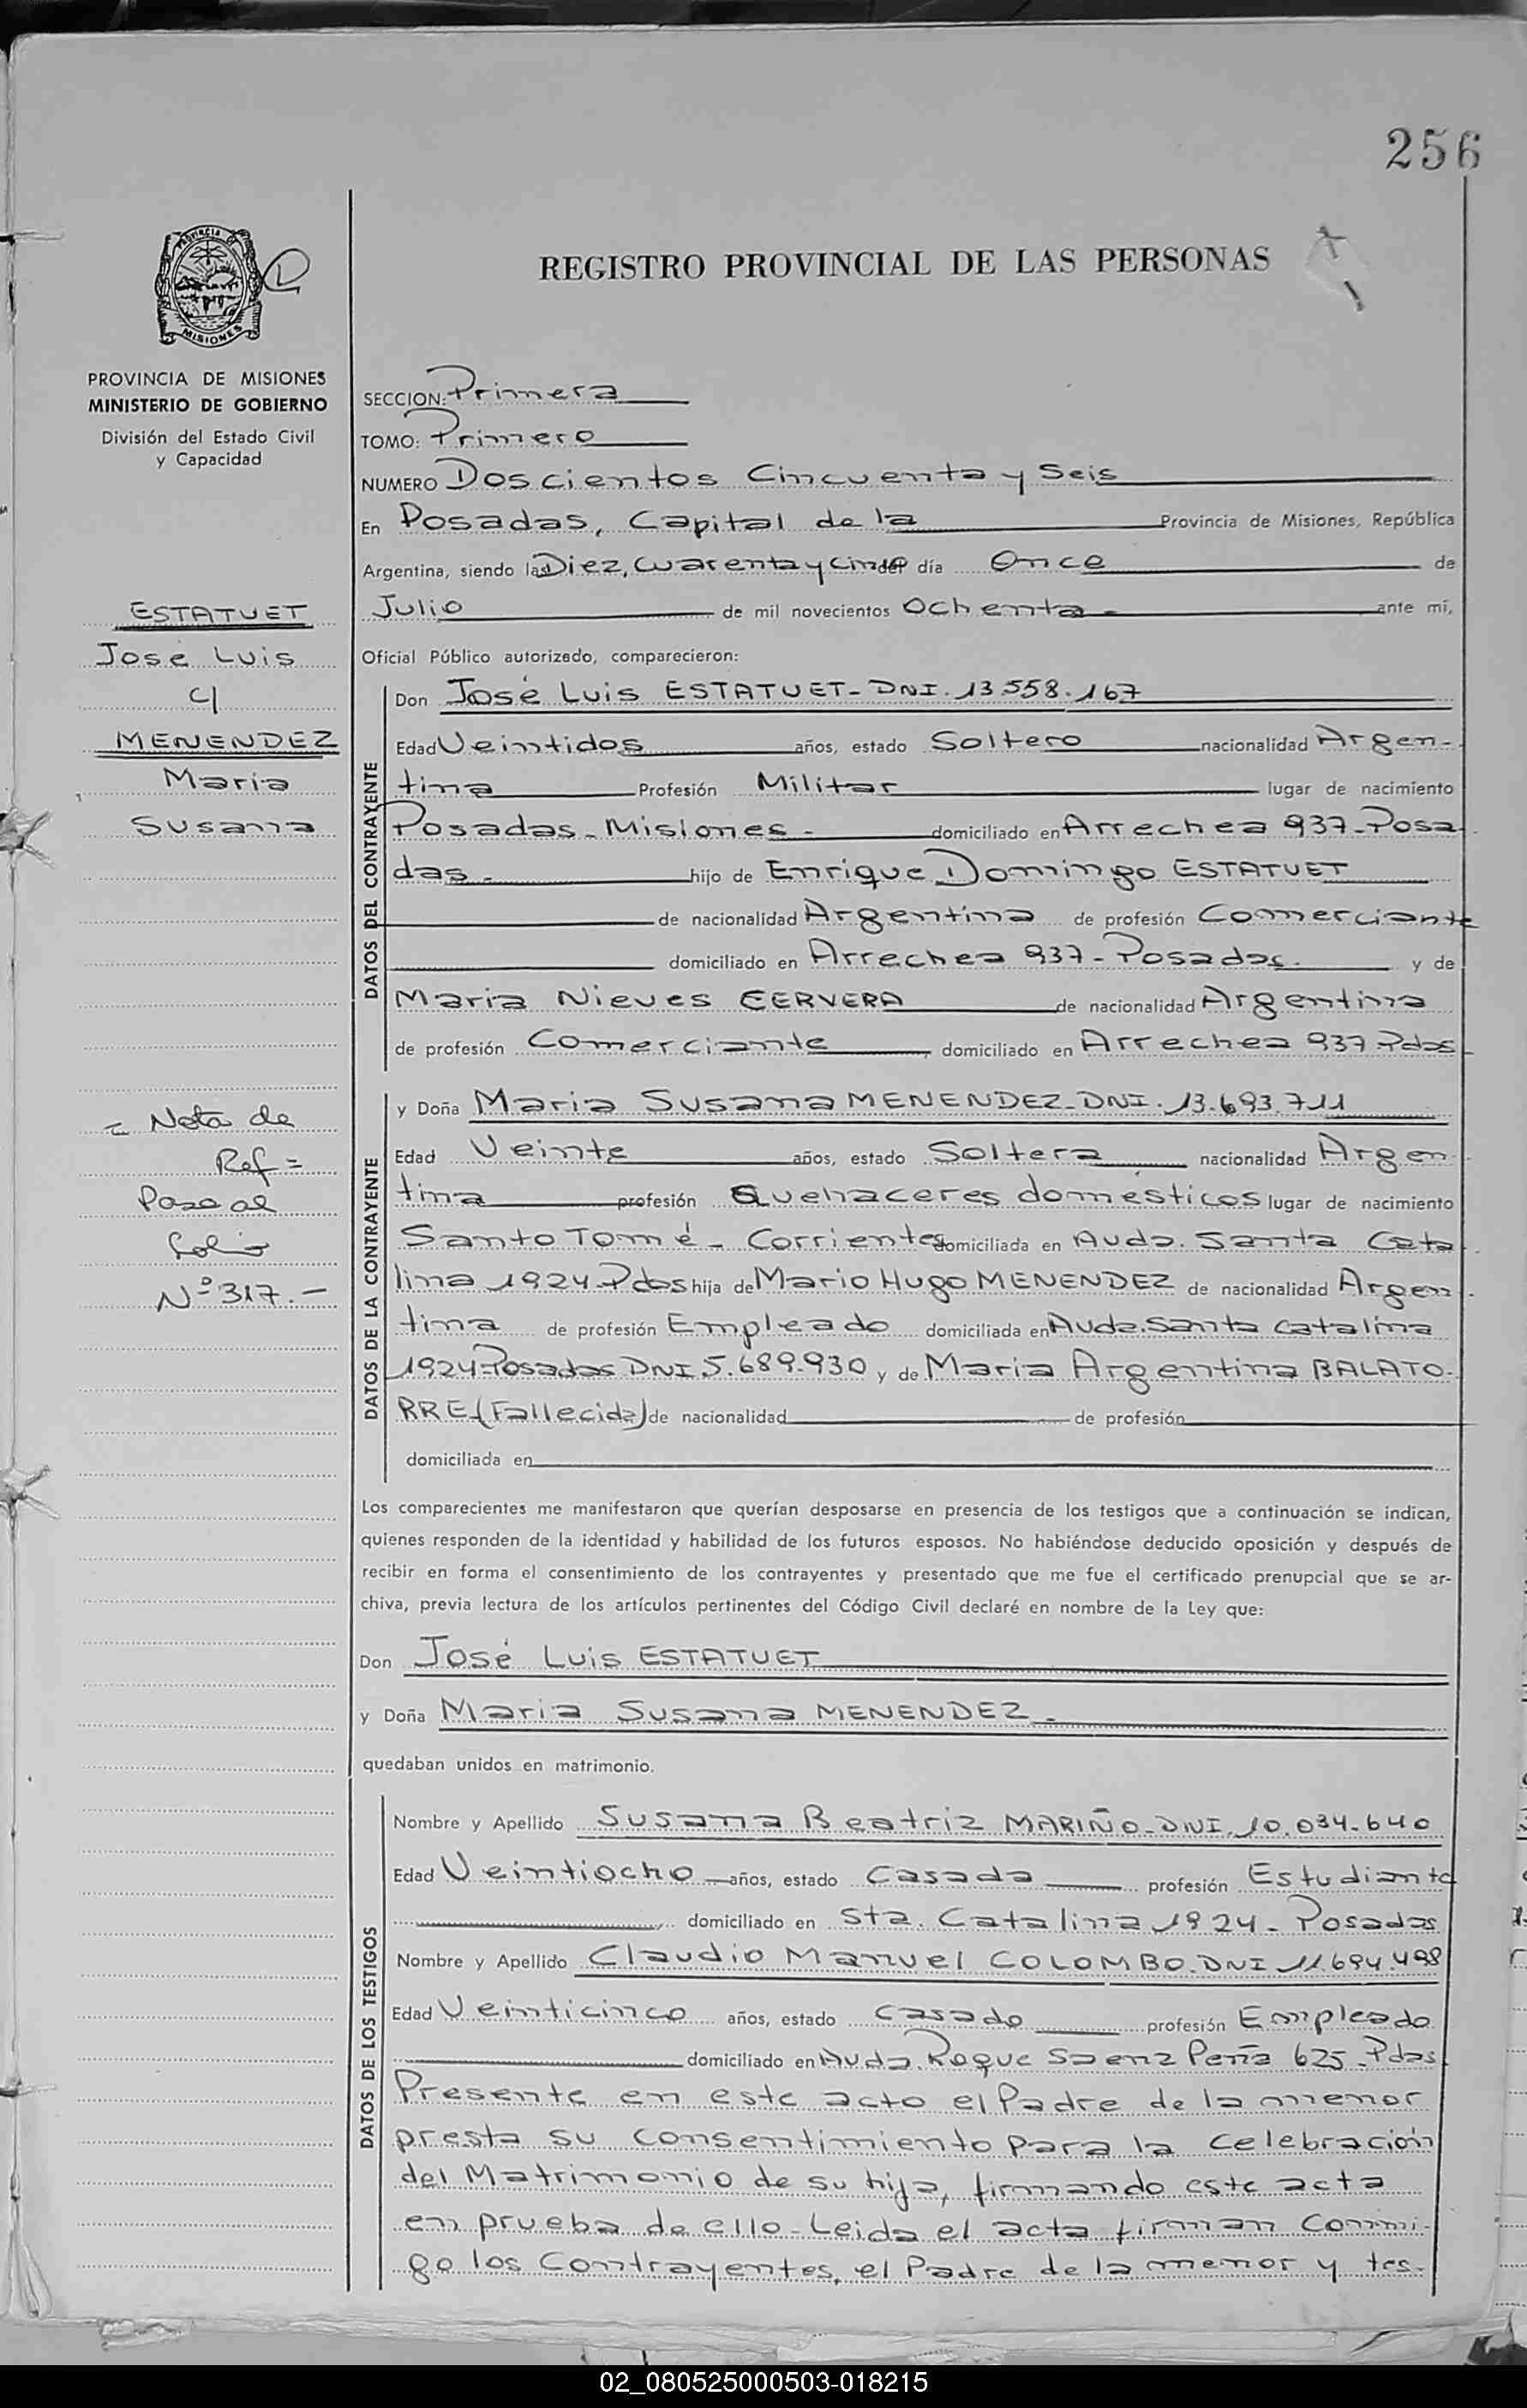 256
REGISTRO PROVINCIAL DE LAS PERSONAS
PROVINCIA DE
MISIONES
PROVINCIA DE MISIONES
MINISTERIO DE GOBIERNO
División del Estado Civil
y Capacidad
ESTATUET
José Luis
c/
MENENDEZ
Maria
Susana
= Nota de
Ref =
Pasa al
Folio
Nº 317.-
SECCION: Primera
TOMO: Primero
NUMERO Doscientos Cincuenta y Seis
En Posadas, Capital de la Provincia de Misiones, República
Argentina, siendo las Diez, cuarenta y cinco del día Once de
Julio de mil novecientos Ochenta - ante mí,
Oficial Público autorizado, comparecieron:
DATOS DEL CONTRAYENTE
Don José Luis ESTATUET - DNI. 13.558.167
Edad Veintidos años, estado Soltero nacionalidad Argen-
tina Profesión Militar lugar de nacimiento
Posadas - Misiones - domiciliado en Arrechea 937 - Posa
das - hijo de Enrique Domingo ESTATUET
de nacionalidad Argentina de profesión Comerciante
domiciliado en Arrechea 937 - Posadas. y de
Maria Nieves CERVERA de nacionalidad Argentina
de profesión Comerciante, domiciliado en Arrechea 937 Pdas
DATOS DE LA CONTRAYENTE
y Doña Maria Susana MENENDEZ - DNI. 13.693.711
Edad Veinte años, estado Soltera nacionalidad Argen
tina profesión Quehaceres domésticos lugar de nacimiento
Santo Tomé - Corrientes domiciliada en Avda. Santa Cata
lina 1924 - Pdas hija de Mario Hugo MENENDEZ de nacionalidad Argen
tina de profesión Empleado domiciliada en Avda. Santa Catalina
1924 - Posadas DNI 5.689.930 y de Maria Argentina BALATO-
RRE - (Fallecida) de nacionalidad de profesión
domiciliada en
Los comparecientes me manifestaron que querían desposarse en presencia de los testigos que a continuación se indican,
quienes responden de la identidad y habilidad de los futuros esposos. No habiéndose deducido oposición y después de
recibir en forma el consentimiento de los contrayentes y presentado que me fue el certificado prenupcial que se ar-
chiva, previa lectura de los artículos pertinentes del Código Civil declaré en nombre de la Ley que:
Don José Luis ESTATUET
y Doña Maria Susana MENENDEZ -
quedaban unidos en matrimonio.
DATOS DE LOS TESTIGOS
Nombre y Apellido Susana Beatriz MARIÑO - DNI. 10.034.640
Edad Veintiocho años, estado Casada profesión Estudiante
domiciliado en Sta. Catalina 1924 - Posadas
Nombre y Apellido Claudio Manuel COLOMBO - DNI 11.694.498
Edad Veinticinco años, estado Casado profesión Empleado
domiciliado en Avda. Roque Saenz Peña 625 - Pdas
Presente en este acto el Padre de la menor
presta su consentimiento para la celebración
del Matrimonio de su hija, firmando este acta
en prueba de ello - Leida el acta firman conmi-
go los Contrayentes, el Padre de la menor y tes-
02_080525000503-018215